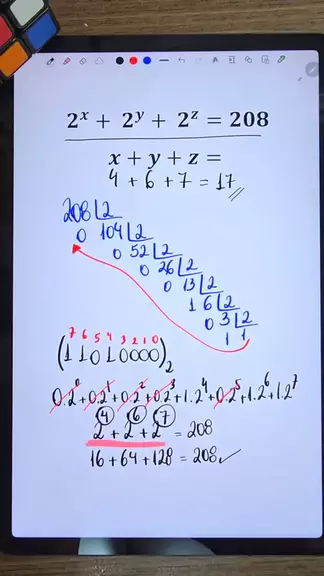 2ˣ + 2ʸ + 2ᶻ = 208
x + y + z =
4 + 6 + 7 = 17
208 | 2
0 104 | 2
0 52 | 2
0 26 | 2
0 13 | 2
1 6 | 2
0 3 | 2
1 1
7 6 5 4 3 2 1 0
(1 1 0 1 0 0 0 0)₂
0.2⁰+0.2¹+0.2²+0.2³+1.2⁴+0.2⁵+1.2⁶+1.2⁷
2⁴ + 2⁶ + 2⁷ = 208
16 + 64 + 128 = 208 ✓